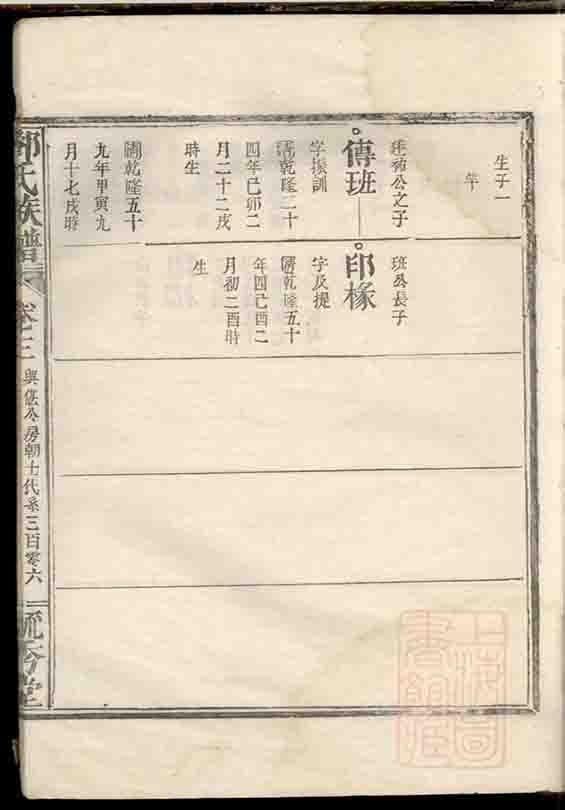 生子一
公之子
傳班
字振訓
清乾隆二十
四年己卯二
月二十二戌
時生
乾隆五十
九年甲寅九
月十七戌時
班公長子
印椽
字及提
清乾隆五十
年四己酉二
月初二酉時
生
氏族譜 卷之三 與公房朝士代系三百零六 流芳堂
上海圖書館藏